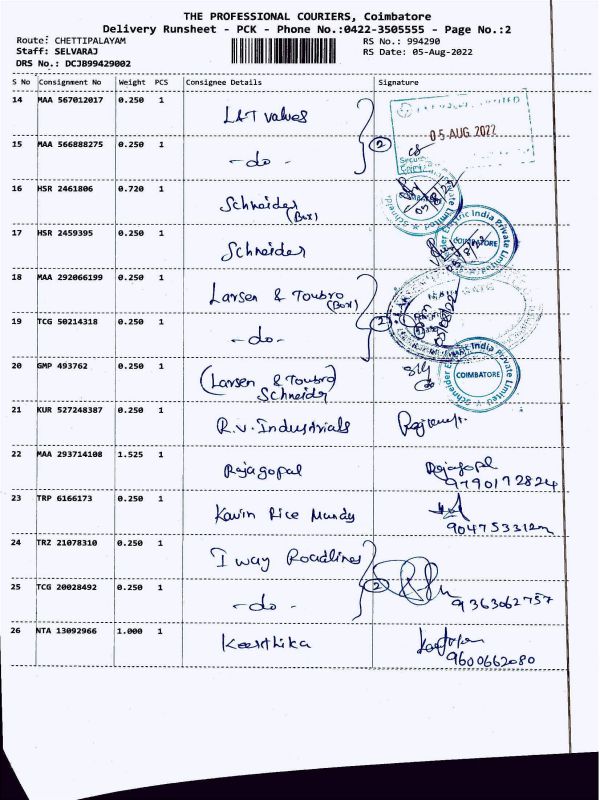 THE PROFESSIONAL COURIERS, Coimbatore
Delivery Runsheet - PCK - Phone No.:0422-3505555 - Page No.:2
Route: CHETTIPALAYAM RS No.: 994290
Staff: SELVARAJ RS Date: 05-Aug-2022
DRS No.: DCJB99429002
S No Consignment No Weight PCS Consignee Details Signature
14 MAA 567012017 0.250 1 L&T valves
05 AUG 2022
15 MAA 566888275 0.250 1 -do- 2
16 HSR 2461806 0.720 1 Schneider (Box)
17 HSR 2459395 0.250 1 Schneider
Electric India Private Limited COIMBATORE
18 MAA 292066199 0.250 1 Larsen & Toubro (Box)
19 TCG 50214318 0.250 1 -do- 2
20 GMP 493762 0.250 1 (Larsen & Toubro) Schneider
Schneider Electric India Private Limited COIMBATORE
21 KUR 527248387 0.250 1 R.V. Industrials
22 MAA 293714108 1.525 1 Rajagopal Rajagopal
9790172824
23 TRP 6166173 0.250 1 Kavin Rice Mundy
24 TRZ 21078310 0.250 1 I way Roadlines
25 TCG 20028492 0.250 1 -do- 2
9363062757
26 NTA 13092966 1.000 1 Keerthika
9600662080